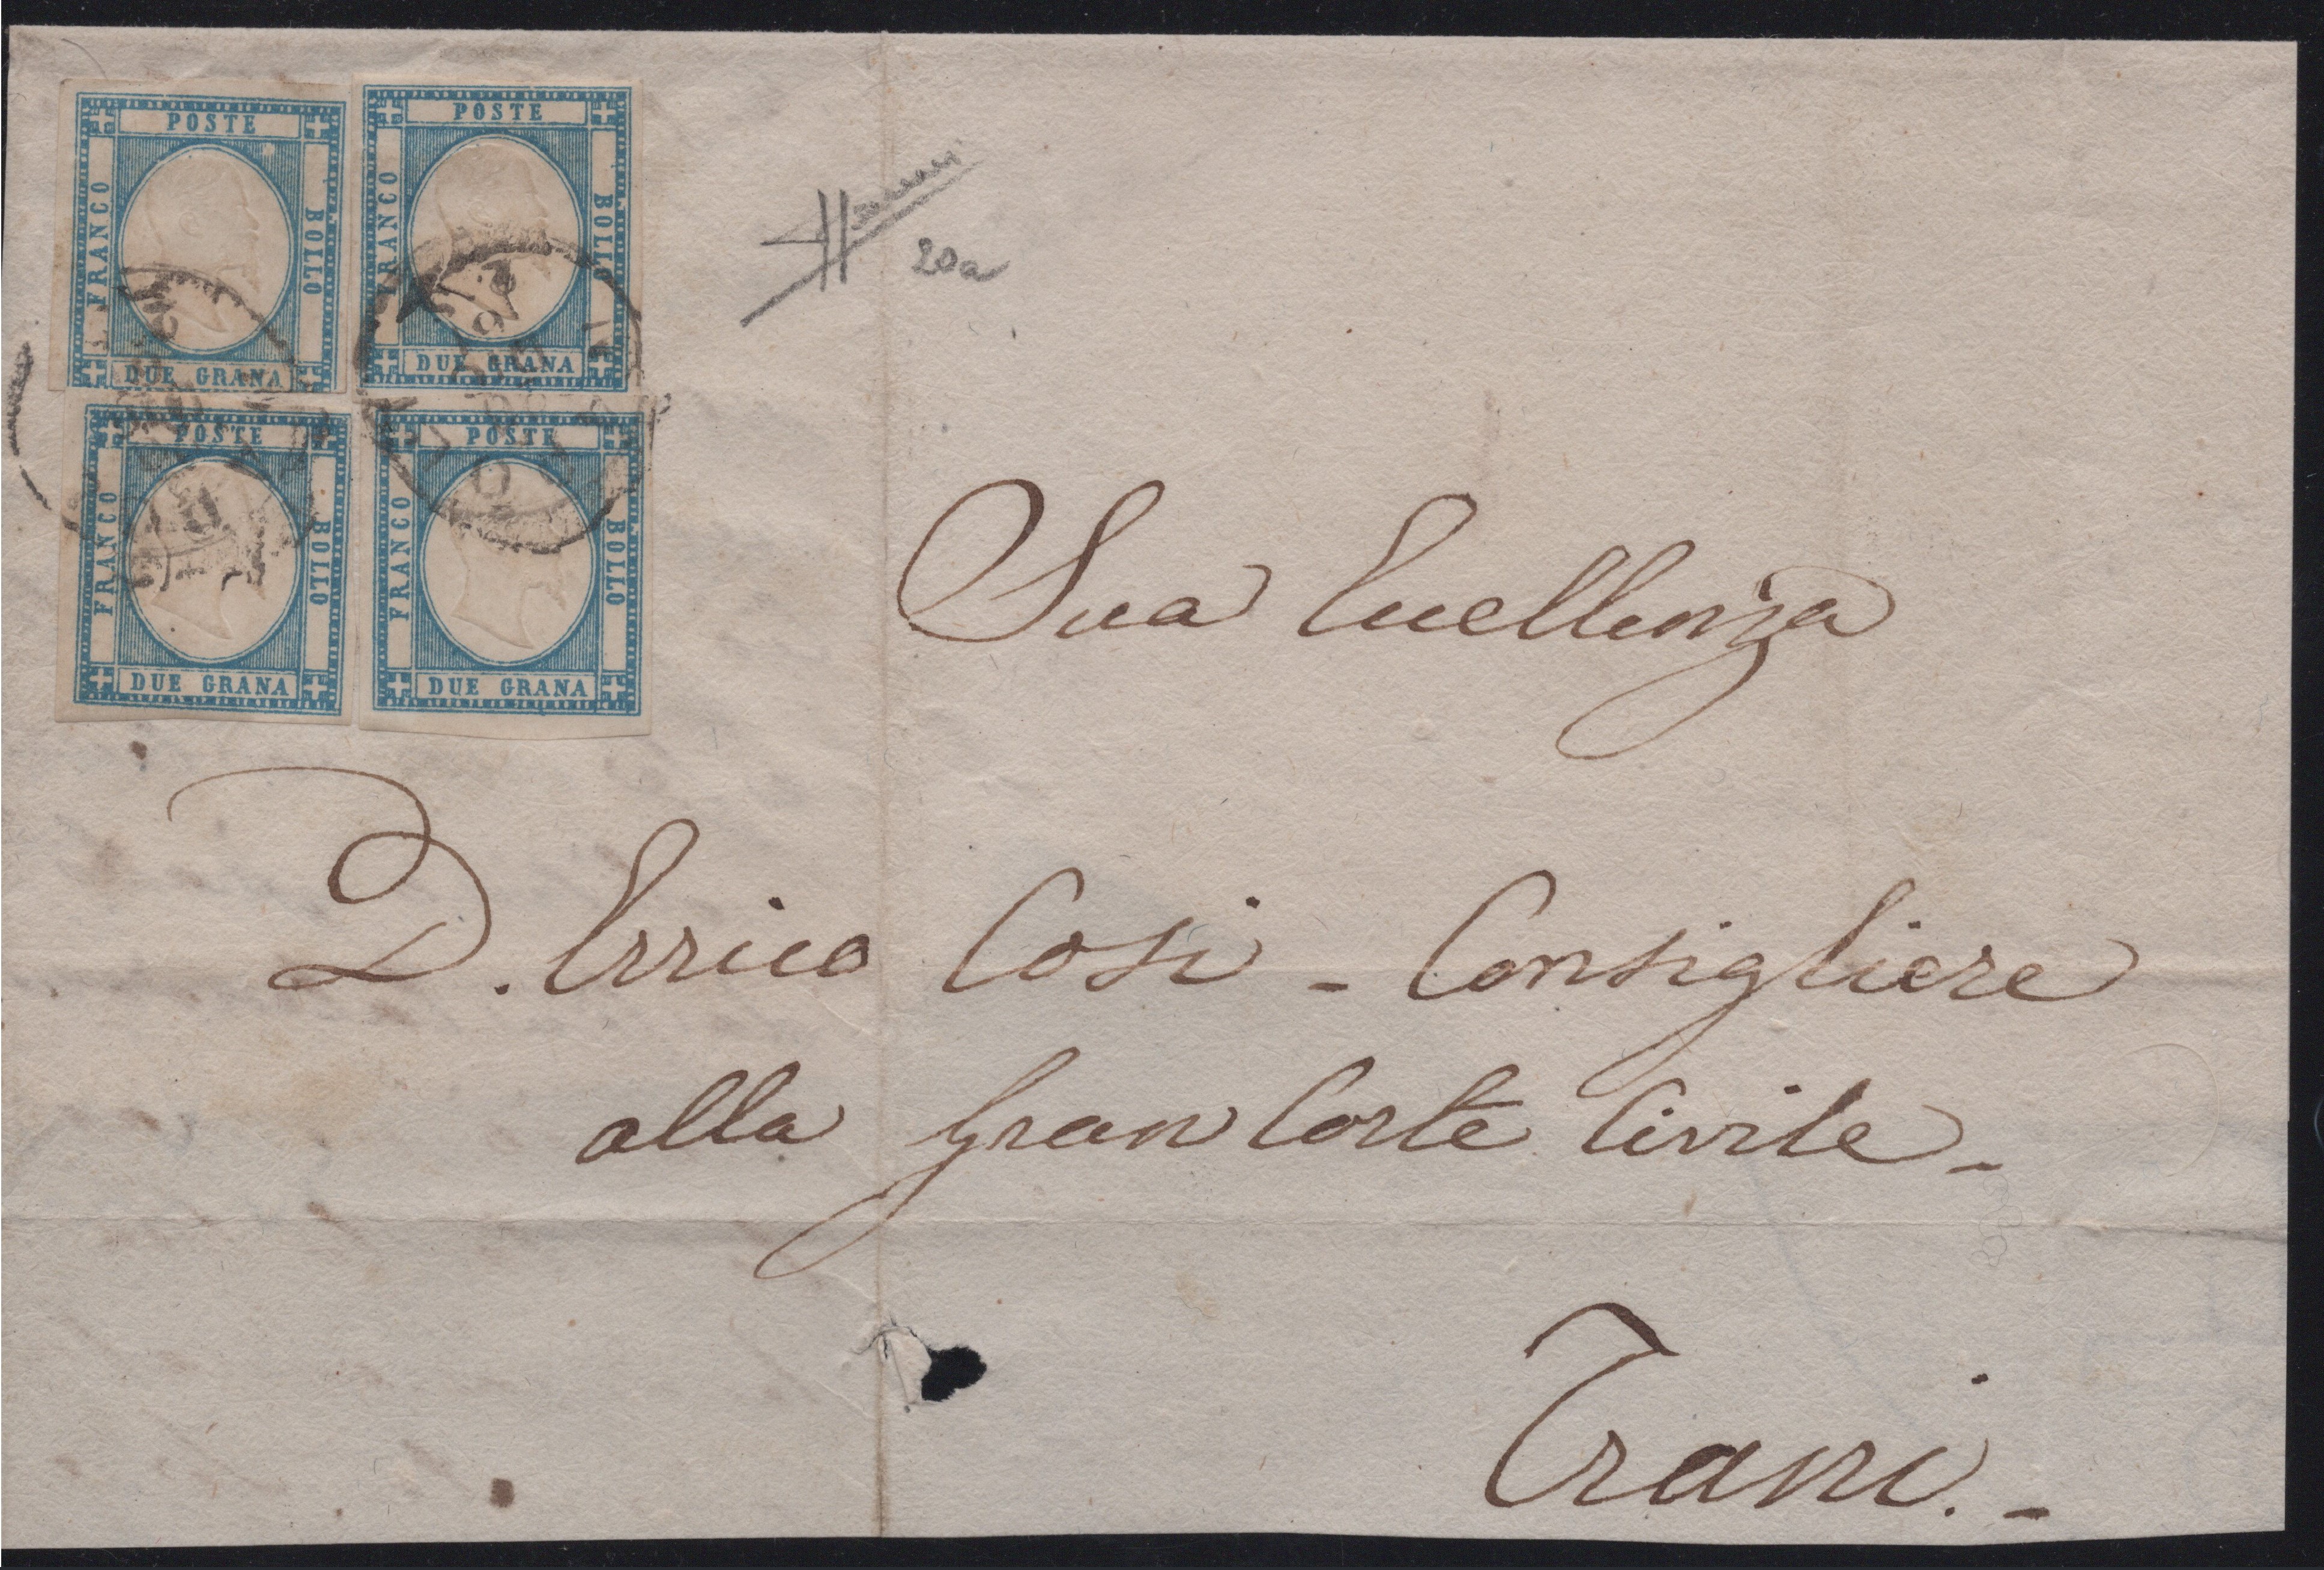 POSTE
FRANCO
BOLLO
DUE GRANA
POSTE
FRANCO
BOLLO
DUE GRANA
POSTE
FRANCO
BOLLO
DUE GRANA
POSTE
FRANCO
BOLLO
DUE GRANA
20a
Sua Eccellenza
D. Errico Cosi - Consigliere
alla Gran Corte Civile -
Trani. -